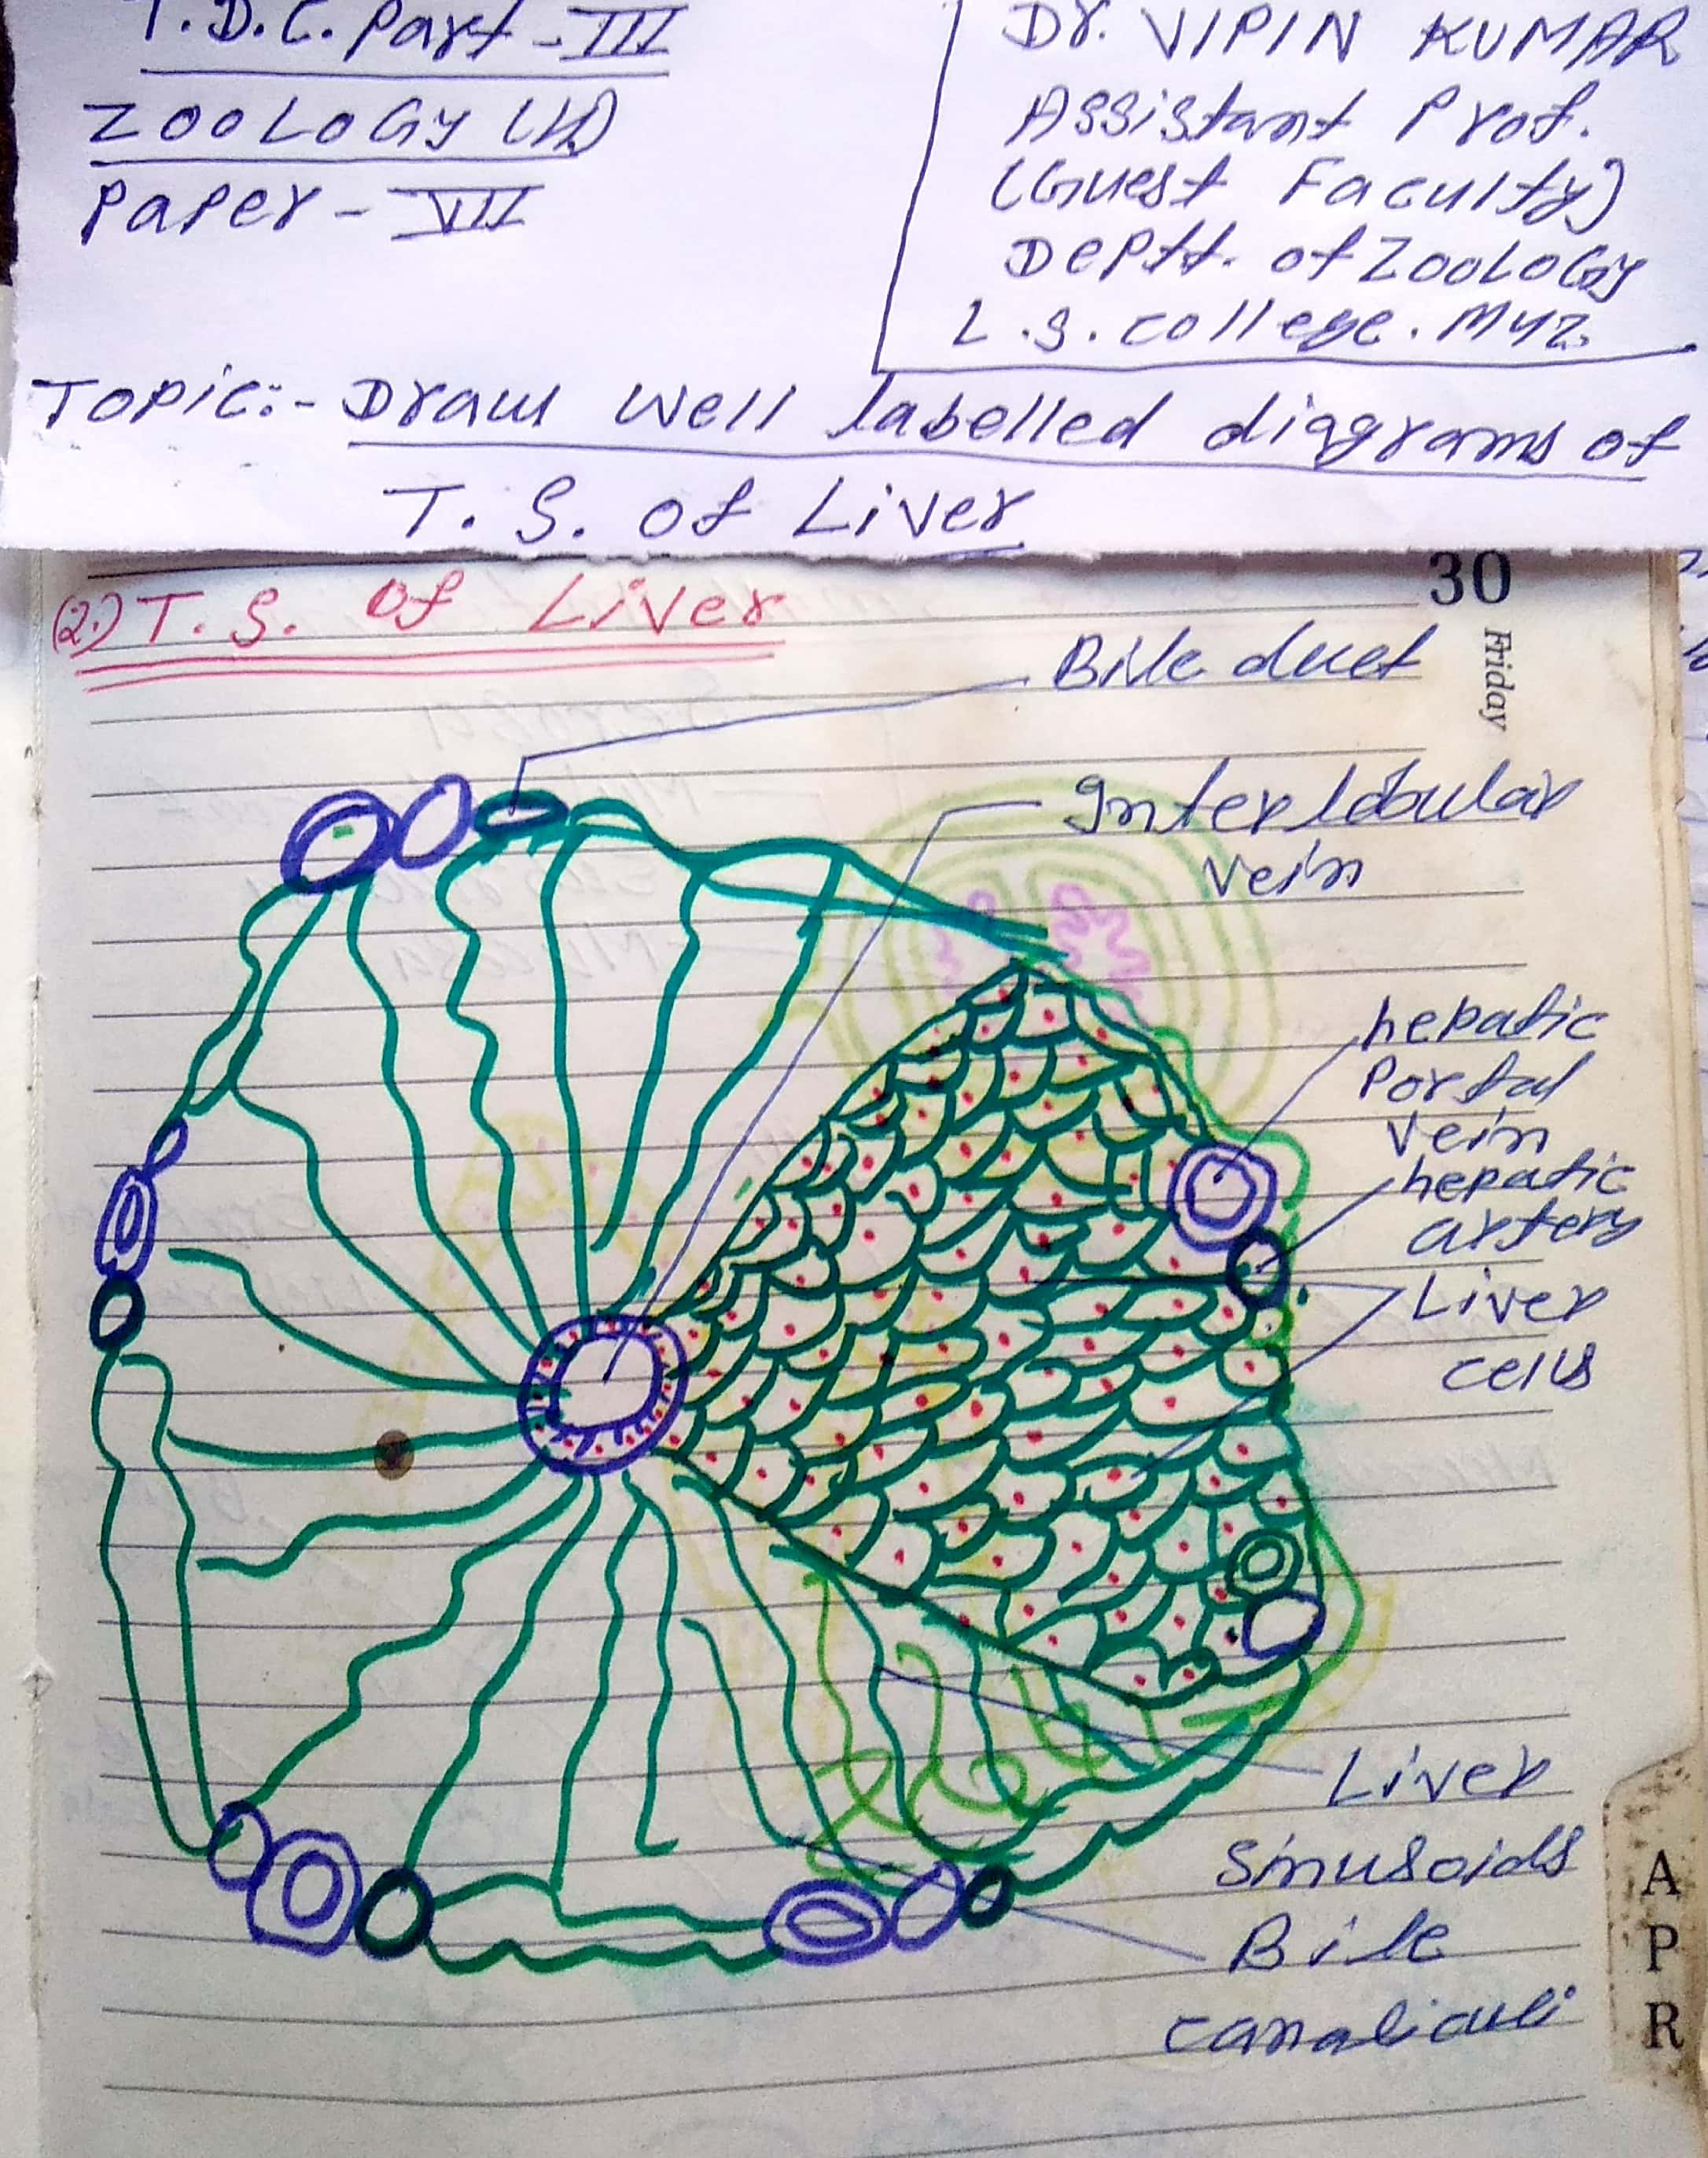 T.D.C. Part - III
ZOOLOGY (H)
Paper - VII
Dr. VIPIN KUMAR
Assistant Prof.
(Guest Faculty)
Deptt. of ZOOLOGY
L.S. college. Muz.
Topic:- Draw well labelled diagrams of
T. S. of Liver
(2.) T. S. of Liver
30
Friday
Bile duct
Interlobular
vein
hepatic
Portal
vein
hepatic
artery
Liver
cells
Liver
Sinusoids
Bile
canaliculi
A
P
R